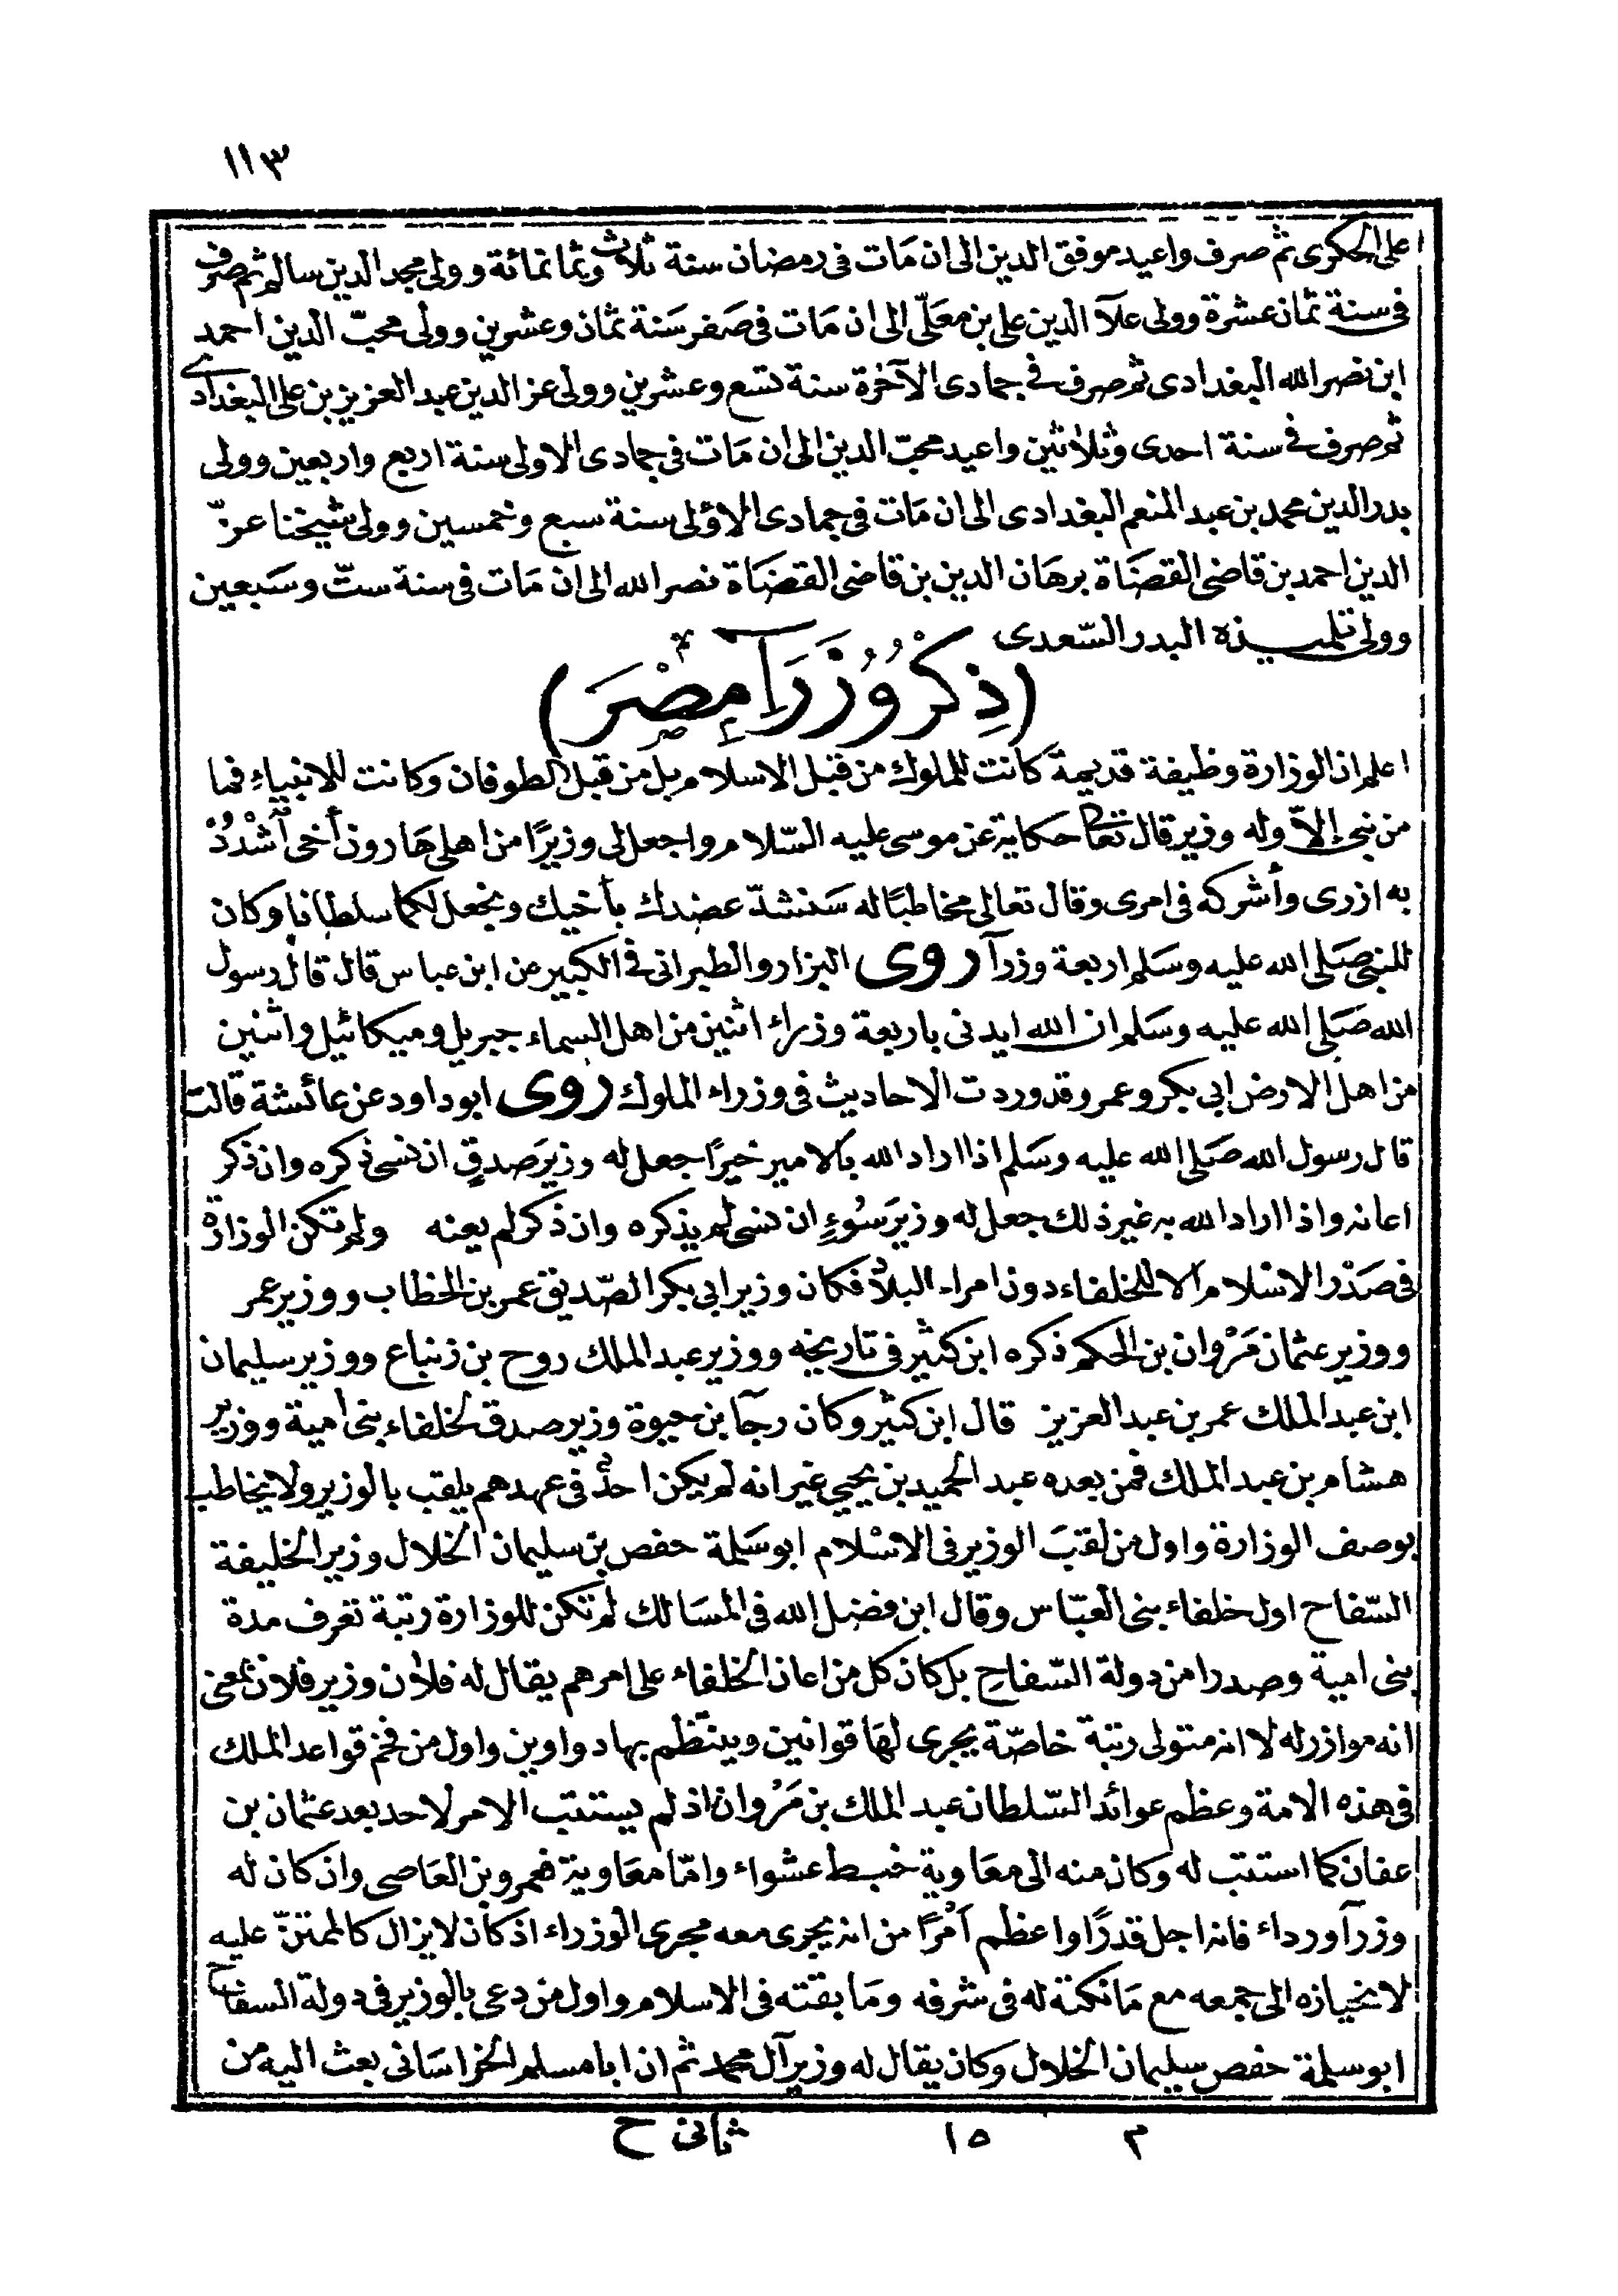 ١١٣
على الحكرى ثم صرف واعيد موفق الدين الى ان مَات فى رمضان سنة ثلاث وثمانمائة وولى مجد الدين سالم ثم صرف
فى سنة ثمان عشرة وولى علآ الدين على بن معلّى الى ان مَات فى صَفر سَنة ثمان وعشرين وولى محبّ الدين احمد
ابن نصر الله البغدادى ثم صرف فى جمادى الآخرة سنة تسع وعشرين وولى عز الدين عبد العزيز بن على البغدادى
ثم صرف فى سنة احدى وثلاثين واعيد محبّ الدين الى ان مَات فى جمادى الاولى سنة اربع واربعين وولى
بدر الدين محمد بن عبد المنعم البغدادى الى ان مَات فى جمادى الاولى سنة سبع وخمسين وولى شيخنا عزّ
الدين احمد بن قاضى القضَاة برهَان الدين بن قاضى القضَاة نصر الله الى ان مَات فى سنة ستّ وسَبعين
وولى تلميذه البدر السّعدى
(ذِكْرُ وُزَرَآءِ مِصْرَ)
اعلم ان الوزارة وظيفة قديمة كانت للملوك من قبل الاسلام بل من قبل الطوفان وكانت للانبياء فما
من نبى إلاّ وله وزير قال تعالى حكاية عن موسى عليه السّلام واجعل لى وزيرًا من اهلى هَارون أخى اُشْدُدْ
به ازرى وأشركه فى امرى وقال تعالى مخاطبًا له سَنشدّ عضدك بأخيك ونجعل لكما سلطانا وكان
للنبى صَلى الله عليه وسَلم اربعة وزرآ روى البزار والطبرانى فى الكبير عن ابن عباس قال قال رسول
الله صَلى الله عليه وسَلم ان الله ايدنى باربعة وزراء اثنين من اهل السماء جبريل وميكائيل واثنين
من اهل الارض ابى بكر وعمر وقد وردت الاحاديث فى وزراء الملوك روى ابو داود عن عائشة قالت
قال رسول الله صَلى الله عليه وسَلم اذا اراد الله بالامير خيرًا جعل له وزيرَ صدقٍ ان نسى ذكره وان ذكر
اعانه واذا اراد الله به غير ذلك جعل له وزيرَ سُوءٍ ان نسى لم يذكره وان ذكر لم يعنه ولم تكن الوزارة
فى صَدْر الاسْلام الا للخلفاء دون امراء البلاد فكان وزير ابى بكر الصّديق عمر بن الخطاب ووزير عمر
ووزير عثمان مَرْوان بن الحكم ذكره ابن كثير فى تاريخه ووزير عبد الملك روح بن زنباع ووزير سليمان
ابن عبد الملك عمر بن عبد العزيز قال ابن كثير وكان رجآ بن حيوة وزير صدق لخلفاء بنى امية ووزير
هشام بن عبد الملك فمن بعده عبد الحميد بن يحيى غير انه لم يكن احدٌ فى عهدهم يلقب بالوزير ولا يخاطب
بوصف الوزارة واول من لقبَ الوزير فى الاسْلام ابو سَلمة حفص بن سليمان الخلال وزير الخليفة
السّفاح اول خلفاء بنى العبّاس وقال ابن فضل الله فى المسَالك لم تكن للوزارة رتبة تعرف مدة
بنى امية وصدرا من دولة السّفاح بل كان كل من اعان الخلفاء على امرهم يقال له فلان وزير فلان بمعنى
انه موازر له لا انه متولى رتبة خاصّة يجرى لهَا قوانين وينتظم بها دواوين واول من فخم قواعد الملك
فى هذه الامة وعظم عوائد السّلطان عبد الملك بن مَرْوان اذ لم يستتب الامر لاحد بعد عثمان بن
عفان كما استتب له وكان منه الى معَاوية خبط عشواء وامّا معَاوية فعمرو بن العَاصى وان كان له
وزرآ ورداء فانه اجل قدرًا واعظم اَمْرًا من انه يجرى معه مجرى الوزراء اذ كان لا يزال كالممتنّ عليه
لانحيازه الى جمعه مع مَا نكتة له فى شرفه ومَا بقته فى الاسلام واول من دعى بالوزير فى دولة السفاح
ابو سلمة حفص سليمان الخلال وكان يقال له وزير آل محمد ثم ان ابا مسلم الخراسَانى بعث اليه من
م ١٥ ثانى ح